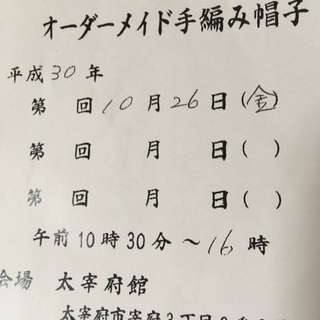 オーダーメイド手編み帽子
平成30年
第 回10月26日(金)
第 回 月 日( )
第 回 月 日( )
午前10時30分 〜16時
会場 太宰府館
太宰府市宰府3丁目